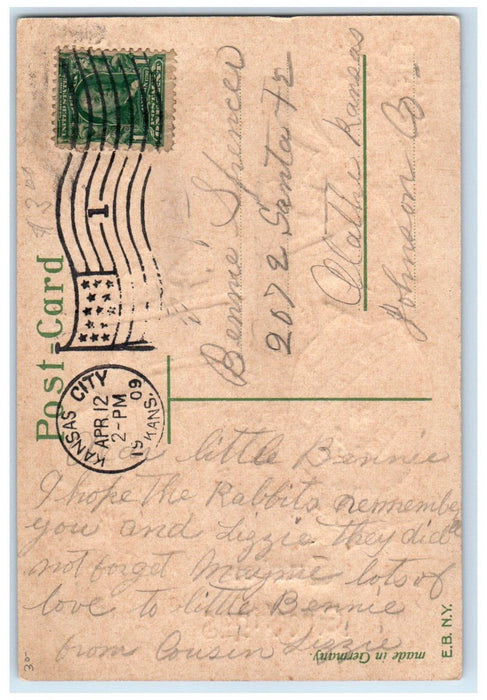 Post-Card
UNITED STATES POSTAGE
1
KANSAS CITY
APR 12
2-PM
1909
KANS.
$3.00
Bennie Spencer
207 E Santa Fe
Olathe Kansas
Johnson Co
Dear little Bennie
I hope the Rabbits remember
you and Lizzie they did
not forget Maymie lots of
love to little Bennie
from Cousin Lizzie
made in Germany.
E.B. N.Y.
30-